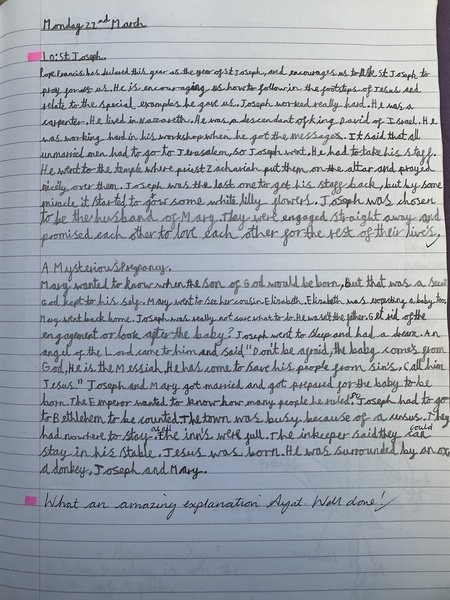 Monday 22nd March
Lo: St Joseph.
Pope Francis has declared this year as the year of St Joseph, and encourages us to ask St Joseph to
pray for us. He is encouraging us how to follow in the footsteps of Jesus and
relate to the special examples he gave us. Joseph worked really hard. He was a
carpenter. He lived in Nazareth. He was a descendant of king David of Israel. He
was working hard in his workshop when he got the messages. It said that all
unmarried men had to go to Jerusalem, so Joseph went. He had to take his staff.
He went to the temple where priest Zachariah put them on the altar and prayed
over them. Joseph was the last one to get his staff back, but by some
miracle it started to grow some white lilly flowers. Joseph was chosen
to be the husband of Mary. They were engaged straight away and
promised each other to love each other for the rest of their lives.
A Mysterious Pregnancy.
Mary wanted to know when the son of God would be born, But that was a secret
God kept to his self. Mary went to see her cousin Elizabeth. Elizabeth was expecting a baby, too.
Mary went back home. Joseph was really not sure what to do. He was not the father. Get rid of the
engagement or look after the baby? Joseph went to sleep and had a dream. An
angel of the Lord came to him and said "Don't be afraid, the baby comes from
God, He is the Messiah, He has come to save his people from sin's. Call him
Jesus." Joseph and Mary got married and got prepared for the baby to be
born. The Emperor wanted to know how many people he ruled so Joseph had to go
to Bethlehem to be counted. The town was busy because of a census. They
had nowhere to stay as all the inn's were full. The inkeeper said they could
stay in his stable. Jesus was born. He was surrounded by an ox,
a donkey, Joseph and Mary.
What an amazing explanation Ayat. Well done!